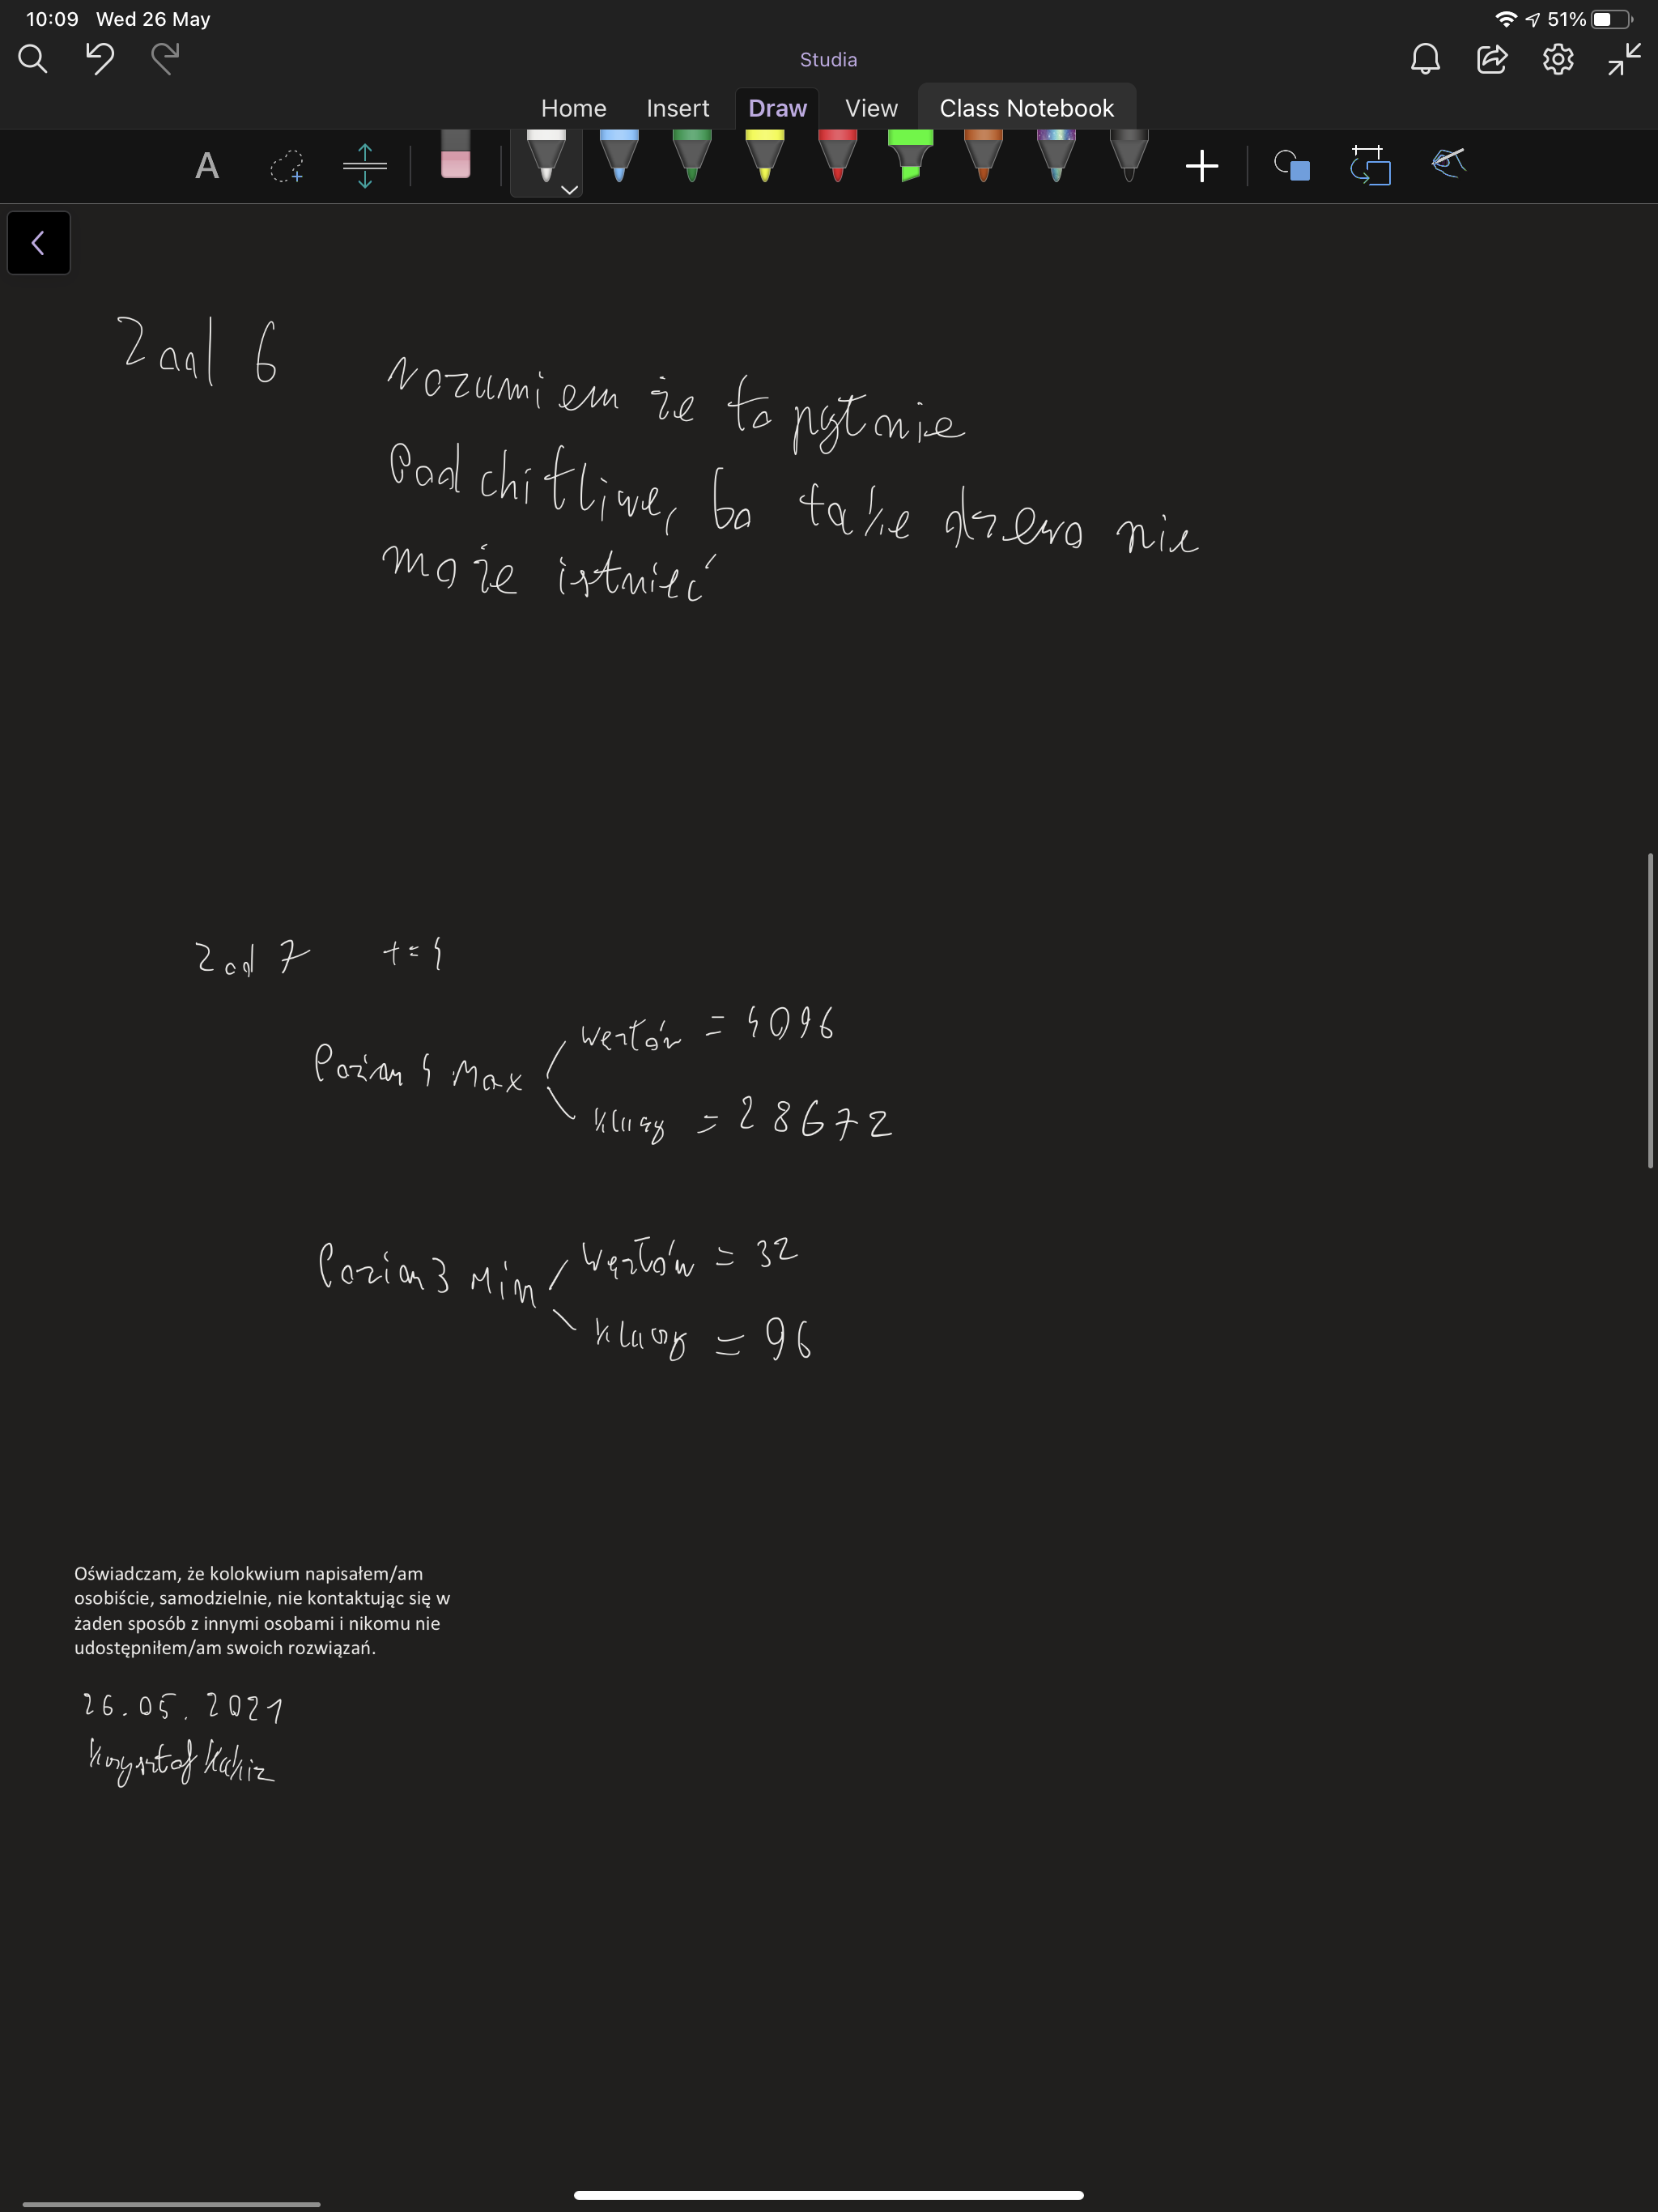 10:09 Wed 26 May
51%
Studia
Home Insert Draw View Class Notebook
A
Zad 6
rozumiem że to pytnie
Podchitliwe, bo takie drzewo nie
może istnieć
Zad 7 t=4
Poziom 4 Max
węzłów = 4096
kluczy = 28672
Poziom 3 Min
węzłów = 32
kluczy = 96
Oświadczam, że kolokwium napisałem/am
osobiście, samodzielnie, nie kontaktując się w
żaden sposób z innymi osobami i nikomu nie
udostępniłem/am swoich rozwiązań.
26.05.2021
Krzysztof